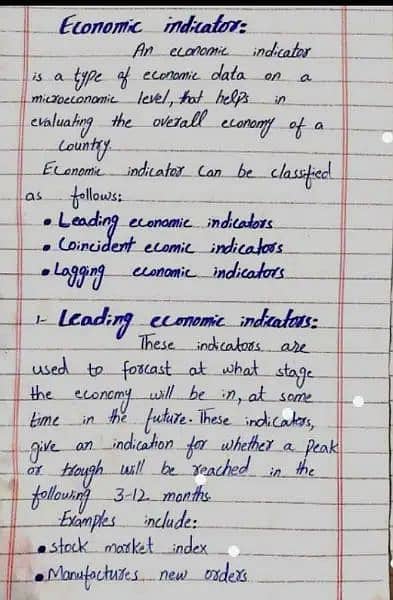 Economic indicator:
An economic indicator
is a type of economic data on a
microeconomic level, that helps in
evaluating the overall economy of a
country.
Economic indicator can be classified
as follows:
• Leading economic indicators
• Coincident ecomic indicators
• Lagging economic indicators
1- Leading economic indicators:
These indicators are
used to forcast at what stage
the economy will be in, at some
time in the future. These indicators,
give an indication for whether a peak
or trough will be reached in the
following 3-12 months.
Examples include:
• stock market index
• Manufactures new orders